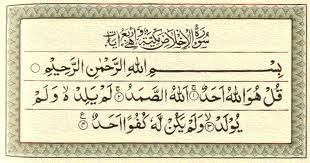 سُوْرَةُ الْاِخْلَاصِ مَكِّيَّةٌ وَّهِيَ اَرْبَعُ اٰيَاتٍ
بِسْمِ اللّٰهِ الرَّحْمٰنِ الرَّحِيْمِ
قُلْ هُوَ اللّٰهُ اَحَدٌ ۝١ اَللّٰهُ الصَّمَدُ ۝٢ لَمْ يَلِدْ ۙ وَلَمْ
يُوْلَدْ ۝٣ وَلَمْ يَكُنْ لَّهٗ كُفُوًا اَحَدٌ ۝٤